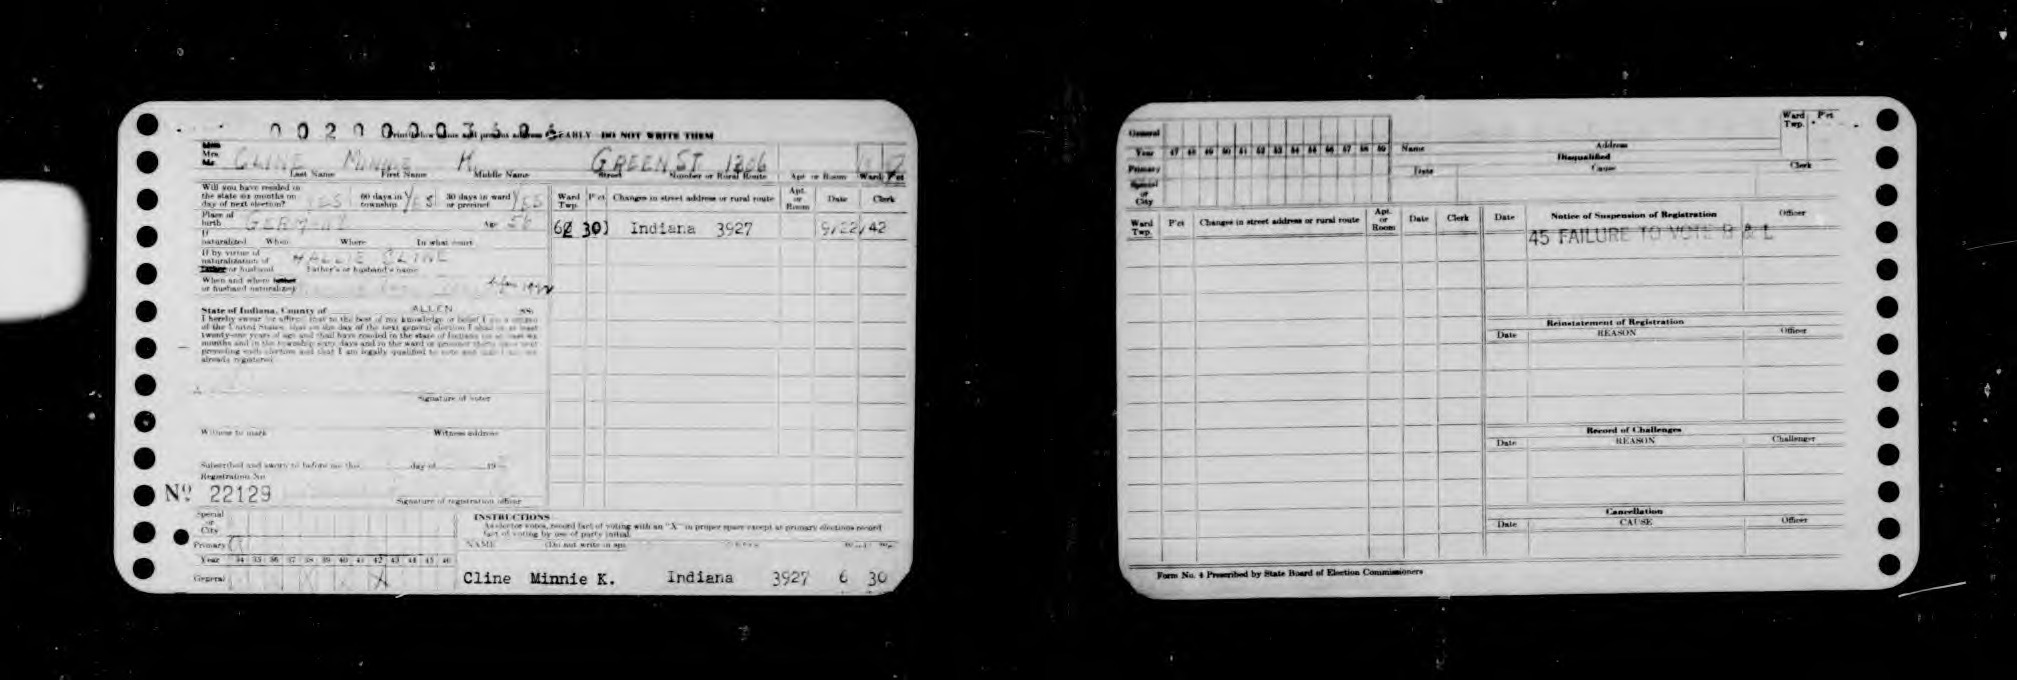 0 0 2 0 0 0 0
EARLY DO NOT WRITE THEM
Mrs.
CLINE MINNIE K. GREEN ST 1306
Last Name First Name Middle Name Street Number or Rural Route Apt or Room Ward Pct
Will you have resided in the state six months on day of next election? YES 60 days in township YES 30 days in ward or precinct YES
Place of birth GERMANY Age 56
If naturalized When Where In what court
If by virtue of naturalization of Father or husband HALLIE CLINE
Father's or husband's name
When and where father or husband naturalized before 1922
State of Indiana, County of ALLEN SS:
I hereby swear (or affirm) that to the best of my knowledge or belief I am a citizen
of the United States, that on the day of the next general election I shall be at least
twenty-one years of age and shall have resided in the state of Indiana for at least six
months and in the township sixty days and in the ward or precinct thirty days next
preceding such election and that I am legally qualified to vote and that I am not
already registered
Signature of voter
Witness to mark Witness address
Subscribed and sworn to before me this day of 19
Registration No.
No 22129
Signature of registration officer
Ward Twp. Pct Changes in street address or rural route Apt. or Room Date Clerk
6 30 Indiana 3927 9/22/42
Special or City
Primary
Year 34 35 36 37 38 39 40 41 42 43 44 45 46
General X X
INSTRUCTIONS
As elector votes, record fact of voting with an "X" in proper space except at primary elections record
fact of voting by use of party initial.
NAME (Do not write in space
Cline Minnie K. Indiana 3927 6 30
General
Year 47 48 49 50 51 52 53 54 55 56 57 58 59
Primary
Special or City
Name Address Ward Twp. Pct
Disqualified
Date Cause Clerk
Ward Twp. Pct Changes in street address or rural route Apt. or Room Date Clerk
Date Notice of Suspension of Registration Officer
45 FAILURE TO VOTE B & L
Reinstatement of Registration
Date REASON Officer
Record of Challenges
Date REASON Challenger
Cancellation
Date CAUSE Officer
Form No. 4 Prescribed by State Board of Election Commissioners